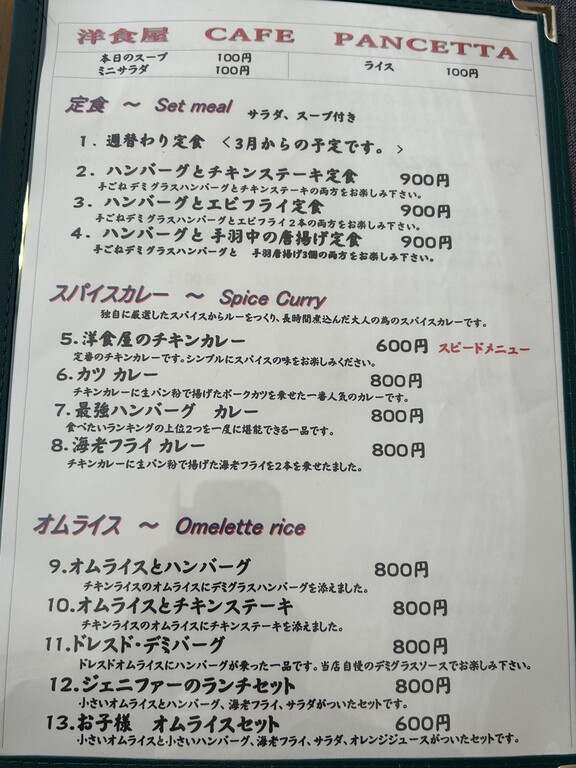 洋食屋 CAFE PANCETTA
本日のスープ 100円 ライス 100円
ミニサラダ 100円
定食 ～ Set meal サラダ、スープ付き
1. 週替わり定食 <3月からの予定です。>
2. ハンバーグとチキンステーキ定食 900円
手ごねデミグラスハンバーグとチキンステーキの両方をお楽しみ下さい。
3. ハンバーグとエビフライ定食 900円
手ごねデミグラスハンバーグとエビフライ2本の両方をお楽しみ下さい。
4. ハンバーグと 手羽中の唐揚げ定食 900円
手ごねデミグラスハンバーグと 手羽唐揚げ3個の両方をお楽しみ下さい。
スパイスカレー ～ Spice Curry
独自に厳選したスパイスからルーをつくり、長時間煮込んだ大人の為のスパイスカレーです。
5.洋食屋のチキンカレー 600円 スピードメニュー
定番のチキンカレーです。シンプルにスパイスの味をお楽しみください。
6.カツ カレー 800円
チキンカレーに生パン粉で揚げたポークカツを乗せた一番人気のカレーです。
7.最強ハンバーグ カレー 800円
食べたいランキングの上位2つを一度に堪能できる一品です。
8.海老フライ カレー 800円
チキンカレーに生パン粉で揚げた海老フライを2本を乗せたました。
オムライス ～ Omelette rice
9.オムライスとハンバーグ 800円
チキンライスのオムライスにデミグラスハンバーグを添えました。
10.オムライスとチキンステーキ 800円
チキンライスのオムライスにチキンステーキを添えました。
11.ドレスド・デミバーグ 800円
ドレスドオムライスにハンバーグが乗った一品です。当店自慢のデミグラスソースでお楽しみ下さい。
12.ジェニファーのランチセット 800円
小さいオムライスとハンバーグ、海老フライ、サラダがついたセットです。
13.お子様 オムライスセット 600円
小さいオムライスと小さいハンバーグ、海老フライ、サラダ、オレンジジュースがついたセットです。